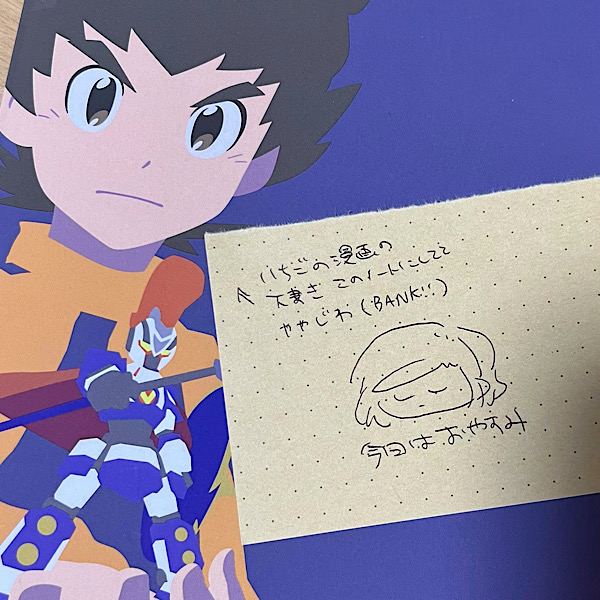 いちごの漫画の
このノートにしてて
ややじわ(BANK!!)
今日はおやすみ